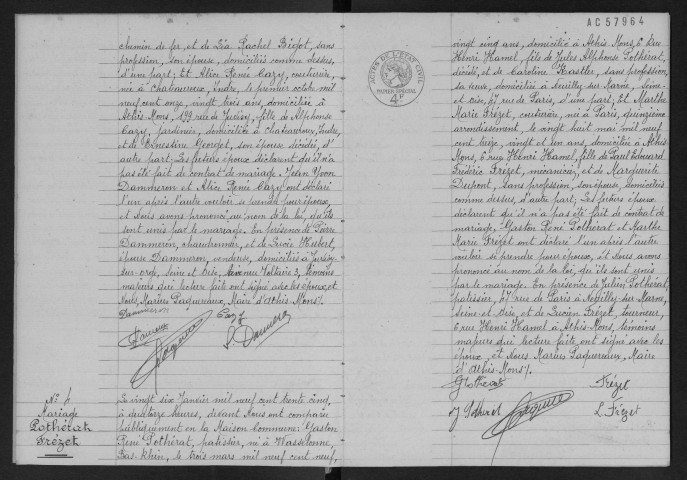 chemin de fer, et de Léa Rachel Bigot, sans
profession, son épouse, domiciliés comme dessus,
d'une part; Et Alice Renée Cazy, couturière,
née à Châteauroux, Indre, le premier octobre mil
neuf cent onze, vingt trois ans, domiciliée à
Athis Mons, 199 rue de Juvisy, fille de Alphonse
Cazy, jardinier, domicilié à Châteauroux, Indre,
et de Ernestine Georget, son épouse décédée, d'
autre part; Les futurs époux déclarent qu'il n'a
pas été fait de contrat de mariage. Jean Yvon
Dammeron et Alice Renée Cazy ont déclaré
l'un après l'autre vouloir se prendre pour époux,
et Nous avons prononcé au nom de la loi, qu'ils
sont unis par le mariage. En présence de Pierre
Dammeron, chaudronnier, et de Lucie Hubert,
épouse Dammeron, vendeuse, domiciliés à Juvisy-
sur-orge, Seine et Oise, avenue Voltaire 3, témoins
majeurs qui lecture faite ont signé avec les époux et
Nous, Marius Paquereaux, Maire d'Athis-Mons.
Dammeron Cazy
L. Dammeron
N° 6
Mariage
Pothérat
Frézet
Le vingt six Janvier mil neuf cent trente cinq,
à heures, devant Nous ont comparu
publiquement en la Maison Commune: Gaston
René Pothérat, pâtissier, né à Wasselonne,
Bas-Rhin, le trois mars mil neuf cent neuf,
AC57964
ACTES DE L'ETAT CIVIL
PAPIER SPECIAL
4F
vingt cinq ans, domicilié à Athis Mons, 6 Rue
Henri Hamel, fils de Jules Alphonse Pothérat,
décédé, et de Caroline Hastter, sans profession,
sa veuve, domiciliée à Neuilly sur Marne, Seine-
et-Oise, 67 rue de Paris, d'une part; Et Marthe
Marie Frézet, couturière, née à Paris, quinzième
arrondissement, le vingt huit mai mil neuf
cent treize, vingt et un ans, domiciliée à Athis
Mons, 6 rue Henri Hamel, fille de Paul Edouard
Frédéric Frézet, mécanicien, et de Marguerite
Dupont, sans profession, son épouse, domiciliés
comme dessus, d'autre part; Les futurs époux
déclarent qu'il n'a pas été fait de contrat de
mariage. Gaston René Pothérat et Marthe
Marie Frézet ont déclaré l'un après l'autre
vouloir se prendre pour époux, et Nous avons
prononcé au nom de la loi, qu'ils sont unis
par le mariage. En présence de Julien Pothérat,
pâtissier, 67 rue de Paris à Neuilly sur Marne,
Seine-et-Oise, et de Lucien Frézet, tourneur,
6 rue Henri Hamel à Athis-Mons, témoins
majeurs qui lecture faite ont signé avec les
époux et Nous Marius Paquereaux, Maire
d'Athis-Mons.
G Potherat Frézet
J Potherat L. Frézet